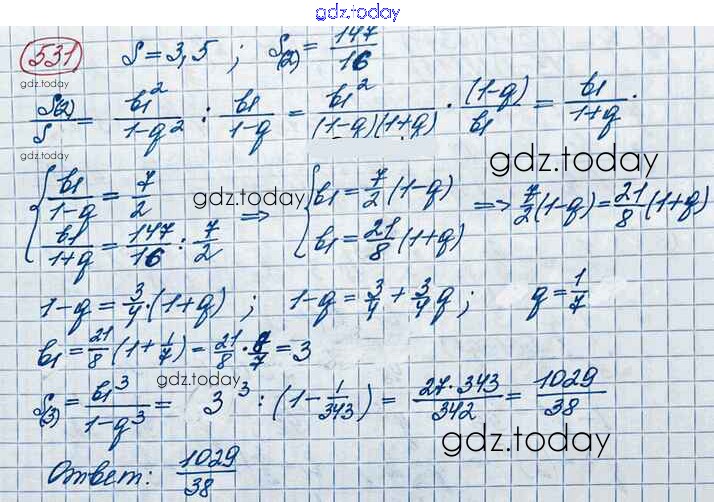 gdz.today
531 S = 3,5 ; S(2) = 147/16
gdz.today
S(2)/S = b1²/(1-q²) : b1/(1-q) = b1²/((1-q)(1+q)) · (1-q)/b1 = b1/(1+q) .
gdz.today gdz.today
{ b1/(1-q) = 7/2 ; b1/(1+q) = 147/16 : 7/2 gdz.today ⇒ { b1 = 7/2 (1-q) ; b1 = 21/8 (1+q) ⇒ 7/2 (1-q) = 21/8 (1+q)
1-q = 3/4 · (1+q) ; 1-q = 3/4 + 3/4 q ; q = 1/7
b1 = 21/8 (1 + 1/7) = 21/8 · 8/7 = 3
gdz.today
S(3) = b1³/(1-q³) = 3³ : (1 - 1/343) = 27·343/342 = 1029/38
gdz.today
Ответ: 1029/38